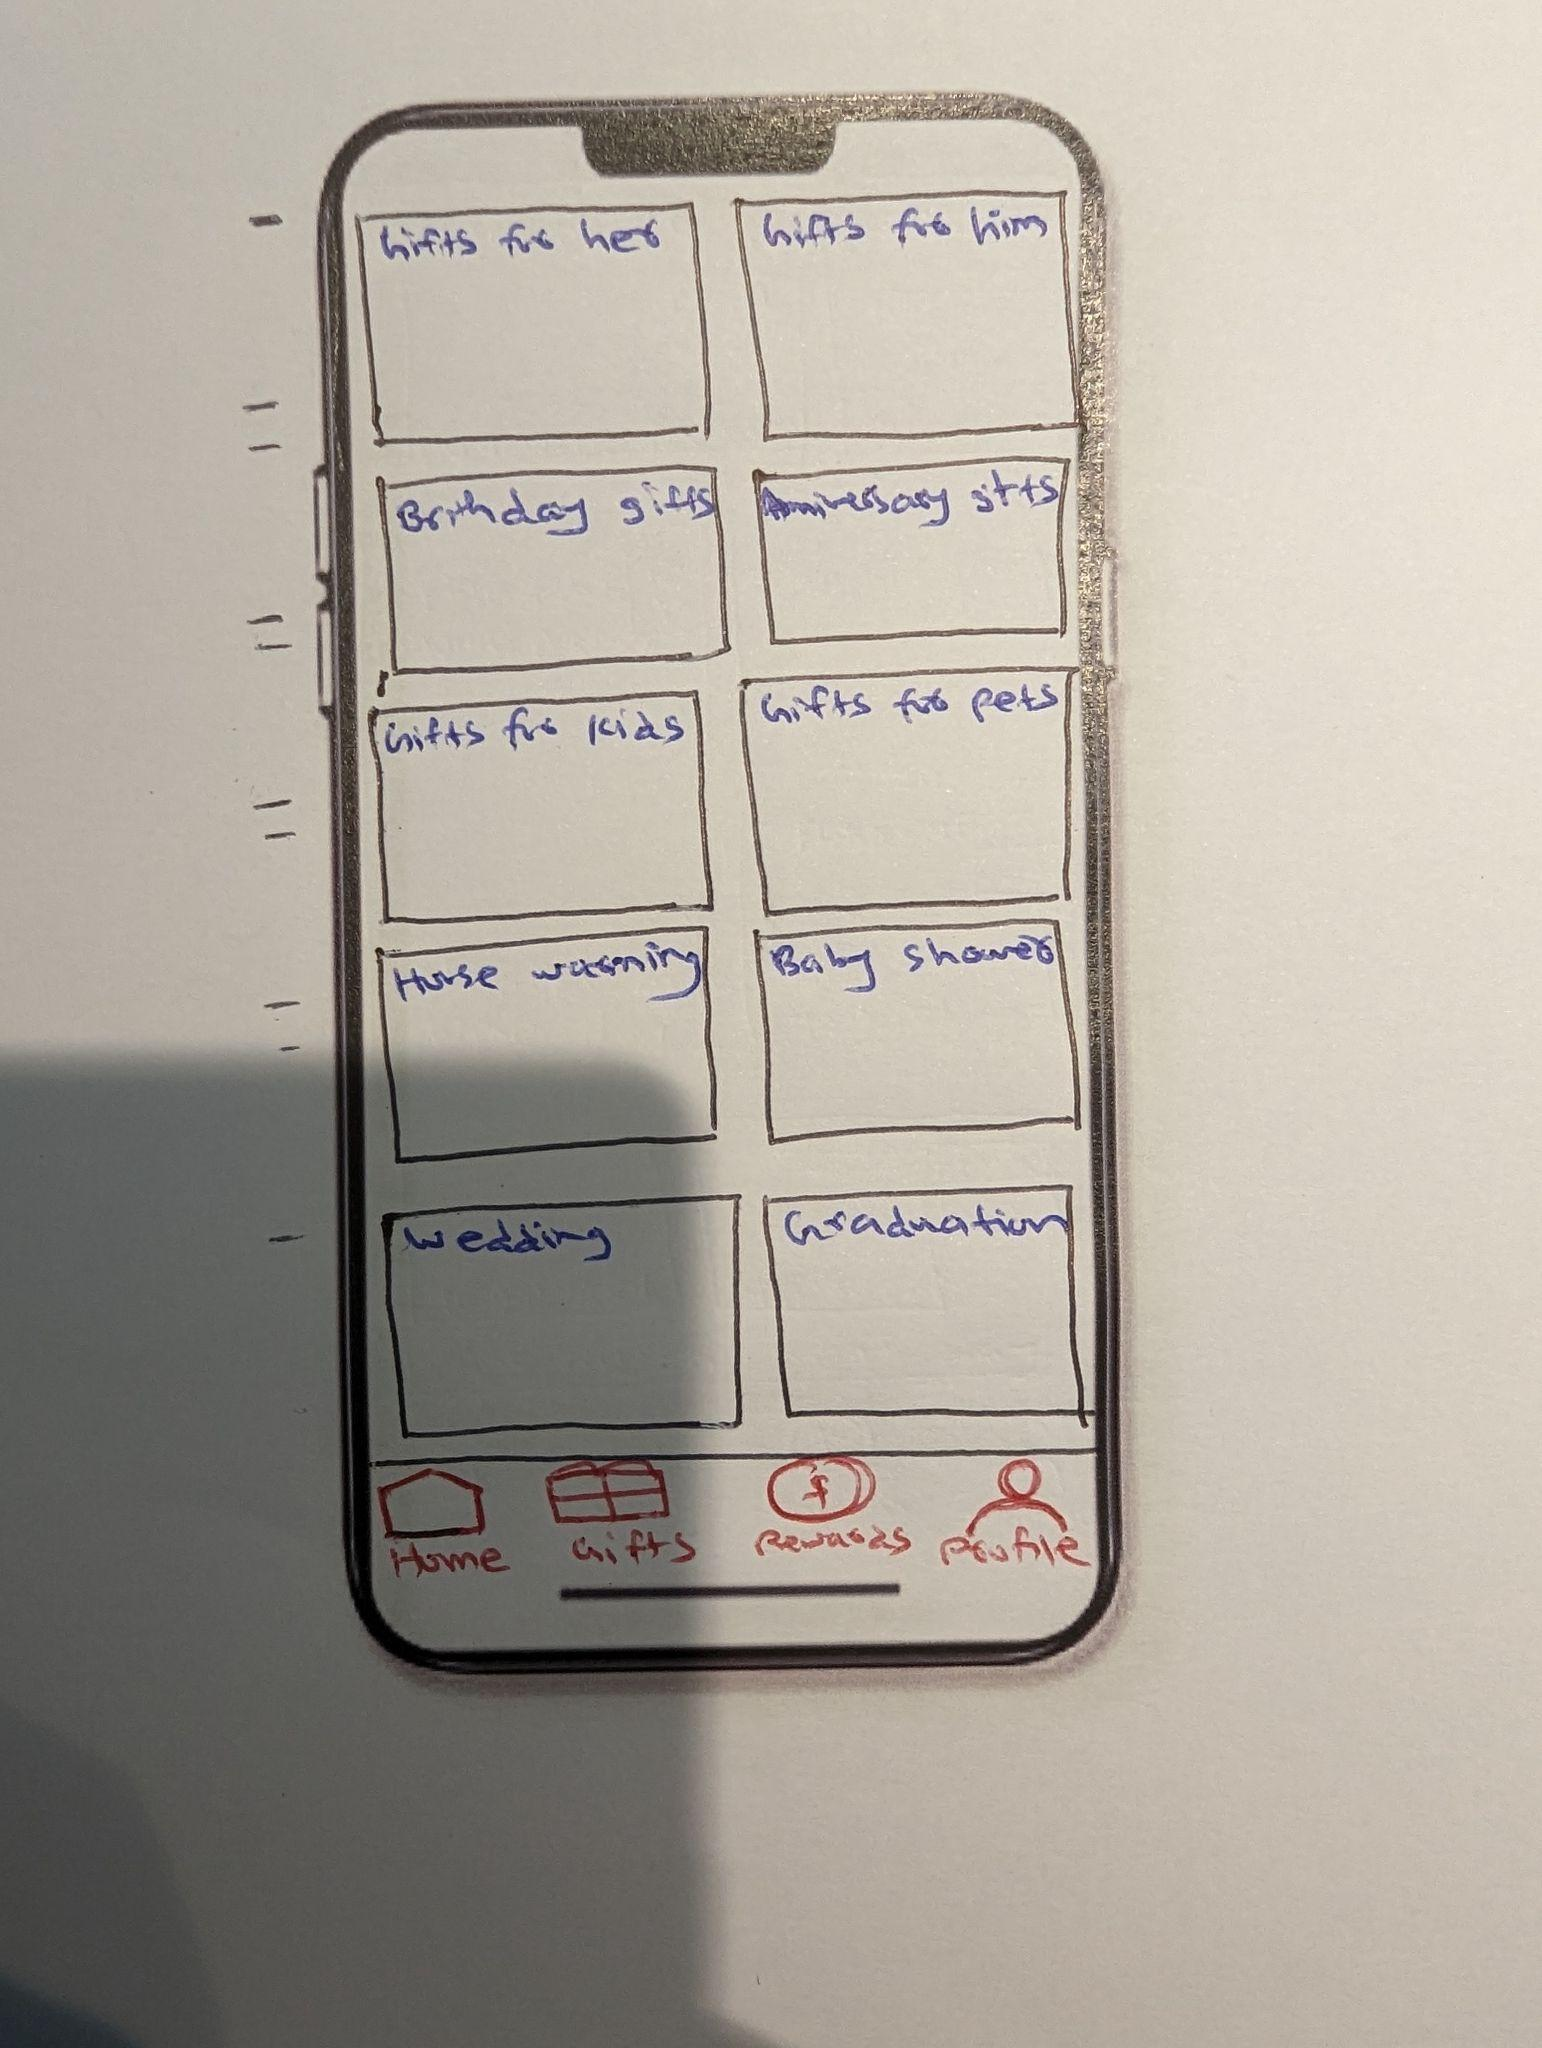 Gifts for her
Gifts for him
Brithday gifts
Anniversary gifts
Gifts for kids
Gifts for pets
House warming
Baby shower
Wedding
Graduation
Home
Gifts
Rewards
Profile